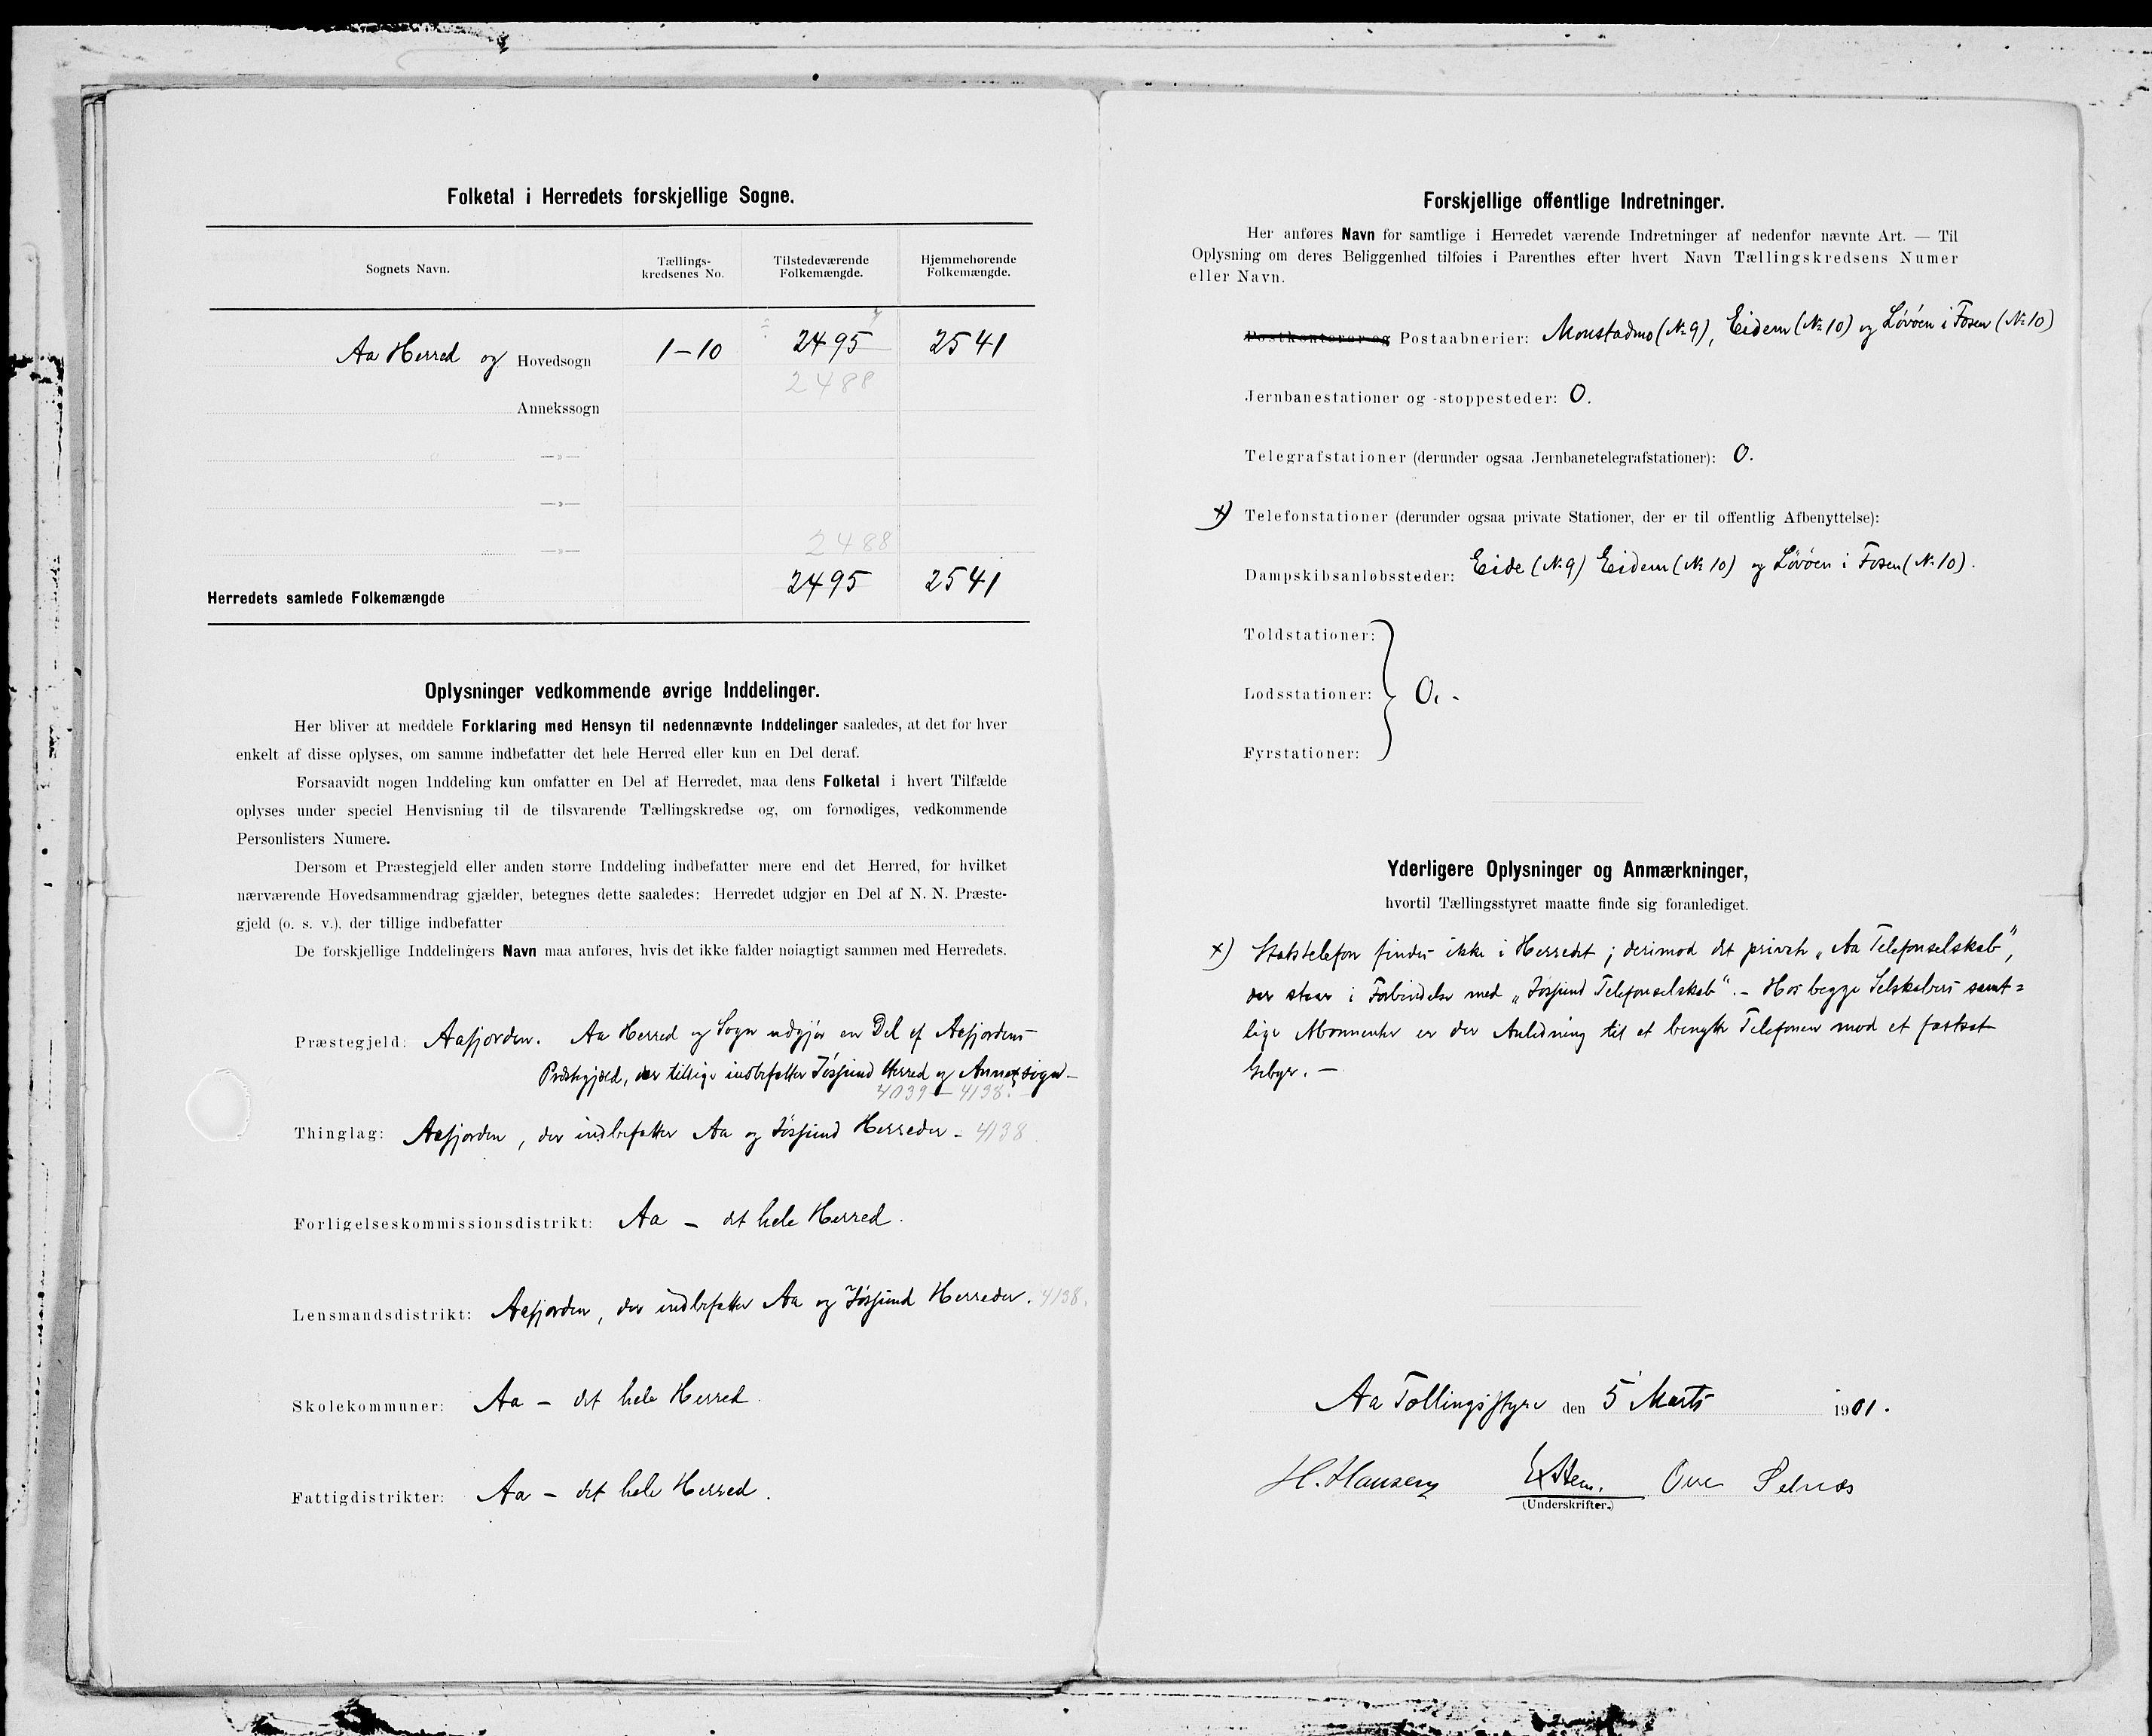 Folketal i Herredets forskjellige Sogne.
Sognets Navn.
Tællings-
kredsenes No.
Tilstedeværende
Folkemængde.
Hjemmehørende
Folkemængde.
Aa Herred og Hovedsogn 1-10 2495 2541
2488
Annekssogn
—»—
—»—
—»—
2488
Herredets samlede Folkemængde 2495 2541
Oplysninger vedkommende øvrige Inddelinger.
Her bliver at meddele Forklaring med Hensyn til nedennævnte Inddelinger saaledes, at det for hver
enkelt af disse oplyses, om samme indbefatter det hele Herred eller kun en Del deraf.
Forsaavidt nogen Inddeling kun omfatter en Del af Herredet, maa dens Folketal i hvert Tilfælde
oplyses under speciel Henvisning til de tilsvarende Tællingskredse og, om fornødiges, vedkommende
Personlisters Numere.
Dersom et Præstegjeld eller anden større Inddeling indbefatter mere end det Herred, for hvilket
nærværende Hovedsammendrag gjælder, betegnes dette saaledes: Herredet udgjør en Del af N. N. Præste-
gjeld (o. s. v.), der tillige indbefatter
De forskjellige Inddelingers Navn maa anføres, hvis det ikke falder nøiagtigt sammen med Herredets.
Præstegjeld: Aafjorden. Aa Herred og Sogn udgjør en Del af Aafjordens
Præstegjæld, der tillige indbefatter Jøssund Herred og Annexsogn —
4039 — 4138.
Thinglag: Aafjorden, der indbefatter Aa og Jøssund Herreder — 4138
Forligelseskommissionsdistrikt: Aa — det hele Herred.
Lensmandsdistrikt: Aafjorden, der indbefatter Aa og Jøssund Herreder. 4138.
Skolekommuner: Aa — det hele Herred.
Fattigdistrikter: Aa — det hele Herred.
Forskjellige offentlige Indretninger.
Her anføres Navn for samtlige i Herredet værende Indretninger af nedenfor nævnte Art. — Til
Oplysning om deres Beliggenhed tilføies i Parenthes efter hvert Navn Tællingskredsens Numer
eller Navn.
Postkontorer og Postaabnerier: Monstadmo (№ 9), Eidem (№ 10) og Løvøen i Fosen (№ 10)
Jernbanestationer og -stoppesteder: 0.
Telegrafstationer (derunder ogsaa Jernbanetelegrafstationer): 0.
x) Telefonstationer (derunder ogsaa private Stationer, der er til offentlig Afbenyttelse):
Dampskibsanløbssteder: Eide (№ 9) Eidem (№ 10) og Løvøen i Fosen (№ 10).
Toldstationer:
Lodsstationer: 0. -
Fyrstationer:
Yderligere Oplysninger og Anmærkninger,
hvortil Tællingsstyret maatte finde sig foranlediget.
x) Statstelefon findes ikke i Herredet; derimod det private „Aa Telefonselskab",
der staar i Forbindelse med „Jøssund Telefonselskab". — Hos begge Selskabers samt-
lige Abonnenter er der Anledning til at benytte Telefonen mod et fastsat
Gebyr. —
Aa Tællingsstyre den 5 Marts 1901.
H. Hansen Ove Selnæs
(Underskrifter.)